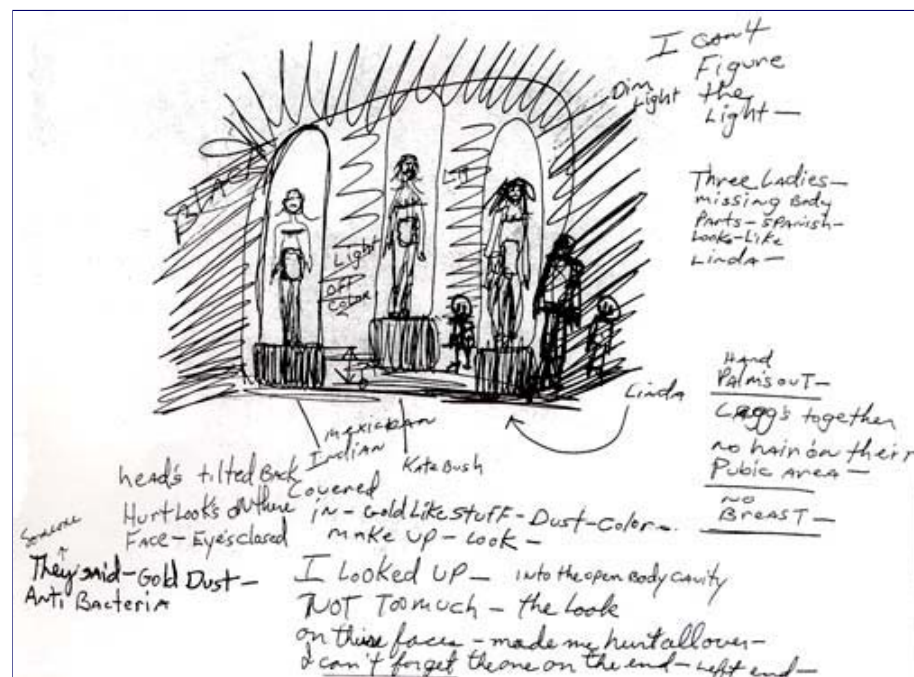 I can't
Figure
the
Light —
Dim
Light
BLACK
Lit
Light
off
Color
Three Ladies —
missing Body
Parts — Spanish —
Looks - Like
Linda —
Hand
Palm's out —
Legg's together
no hair on their
Pubic Area —
no
BREAST —
Linda
Mexican
Indian
Kate Bush
head's tilted Back
Hurt Look's on there
Face — Eye's closed
Covered
in — Gold Like Stuff - Dust - Color —
make up — Look —
Someone
They said — Gold Dust —
Anti Bacteria
I Looked up — into the open Body cavity
NOT Too much — the Look
on these faces — made me hurt all over —
I can't forget the one on the end — Left end —